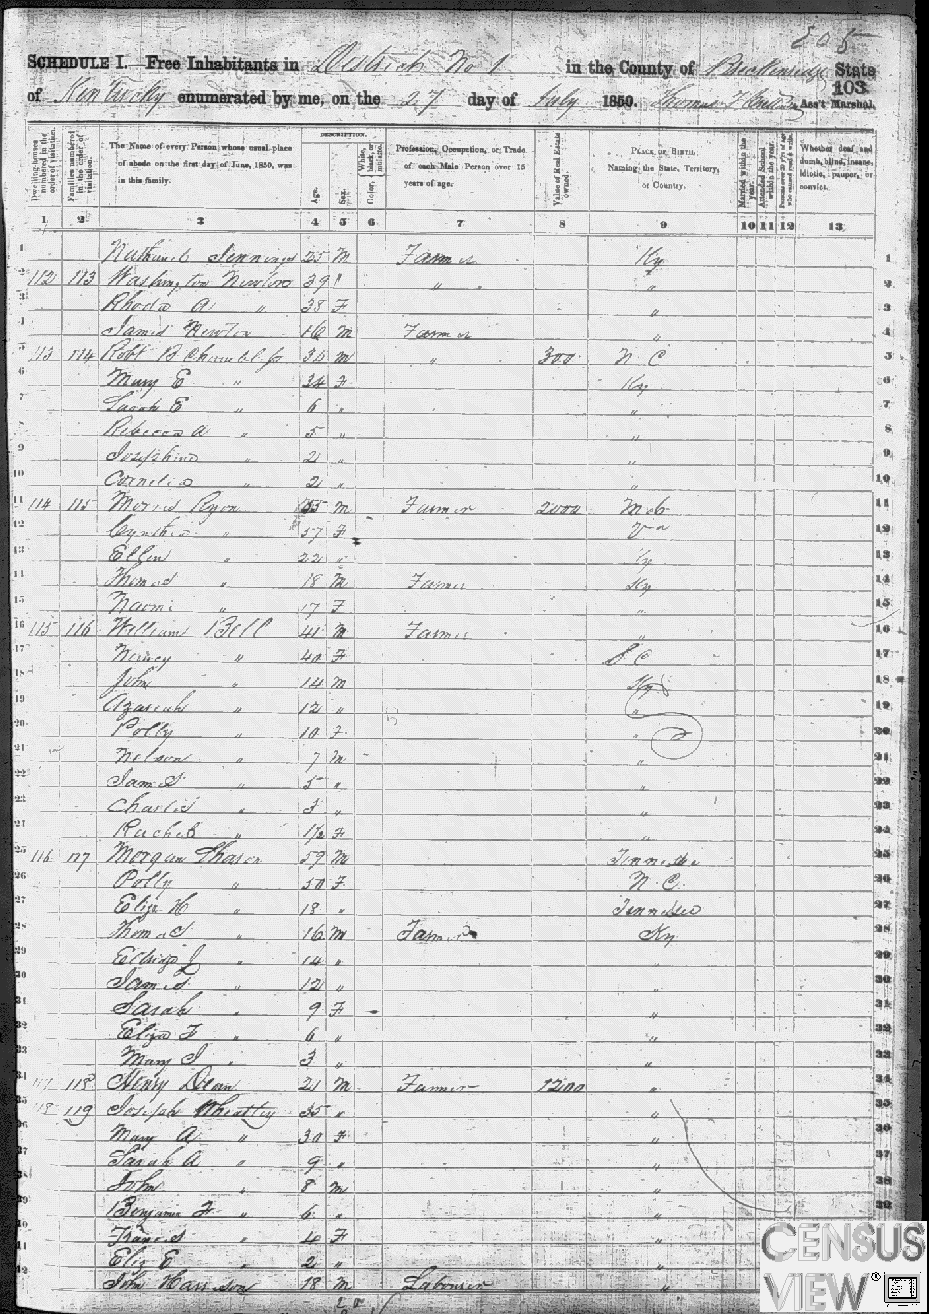 505
SCHEDULE I. Free Inhabitants in District No 1 in the County of Breckenridge State
of Kentucky enumerated by me, on the 27 day of July 1850. Thomas Ass't Marshal.
103
Dwelling-houses numbered in the order of visitation.
Families numbered in the order of visitation.
The Name of every Person whose usual place of abode on the first day of June, 1850, was in this family.
DESCRIPTION.
Age.
Sex.
Color, White, black, or mulatto.
Profession, Occupation, or Trade of each Male Person over 15 years of age.
Value of Real Estate owned.
PLACE OF BIRTH. Naming the State, Territory, or Country.
Married within the year.
Attended School within the year.
Persons over 20 y'rs of age who cannot read & write.
Whether deaf and dumb, blind, insane, idiotic, pauper, or convict.
1 2 3 4 5 6 7 8 9 10 11 12 13
1 Jennings 25 M Farmer Ky 1
2 112 113 Washington Newton 39 " " 2
3 Rhoda A " 38 F " 3
4 James Newton 16 M Farmer " 4
5 113 114 Robt B 35 M " 300 N C 5
6 Mary E " 34 F Ky 6
7 Sarah E " 6 " " 7
8 Rebecca A " 5 " " 8
9 Josephine " 2 " " 9
10 Cornelia " 2 " " 10
11 114 115 Morris Ryon 55 M Farmer 2000 11
12 Cynthia " 57 F Va 12
13 Ellen " 22 " Ky 13
14 Thomas " 18 M Farmer Ky 14
15 Naomi " 17 F " 15
16 115 116 William Bell 41 M Farmer " 16
17 Nancy " 40 F S C 17
18 John " 14 M Ky 18
19 Azariah " 12 " " 19
20 Polly " 10 F " 20
21 Nelson " 7 M " 21
22 James " 5 " " 22
23 Charles " 3 " " 23
24 Rachel " 1/2 F " 24
25 116 117 Morgan 59 M Tennessee 25
26 Polly " 50 F N. C. 26
27 Eliza H " 18 " Tennessee 27
28 Thomas " 16 M Farmer Ky 28
29 J " 14 " " 29
30 James " 12 " " 30
31 Sarah " 9 F " 31
32 Eliza F " 6 " " 32
33 Mary J " 3 " " 33
34 117 118 Henry Dean 21 M Farmer 1200 " 34
35 118 119 Joseph Wheatley 35 " " 35
36 Mary A " 30 F " 36
37 Sarah A " 9 " " 37
38 John " 8 M " 38
39 Benjamin F " 6 " " 39
40 Francis " 4 F "
41 Eliz E " 2 " "
42 John Harrison 18 M Labourer "
CENSUS
VIEW®